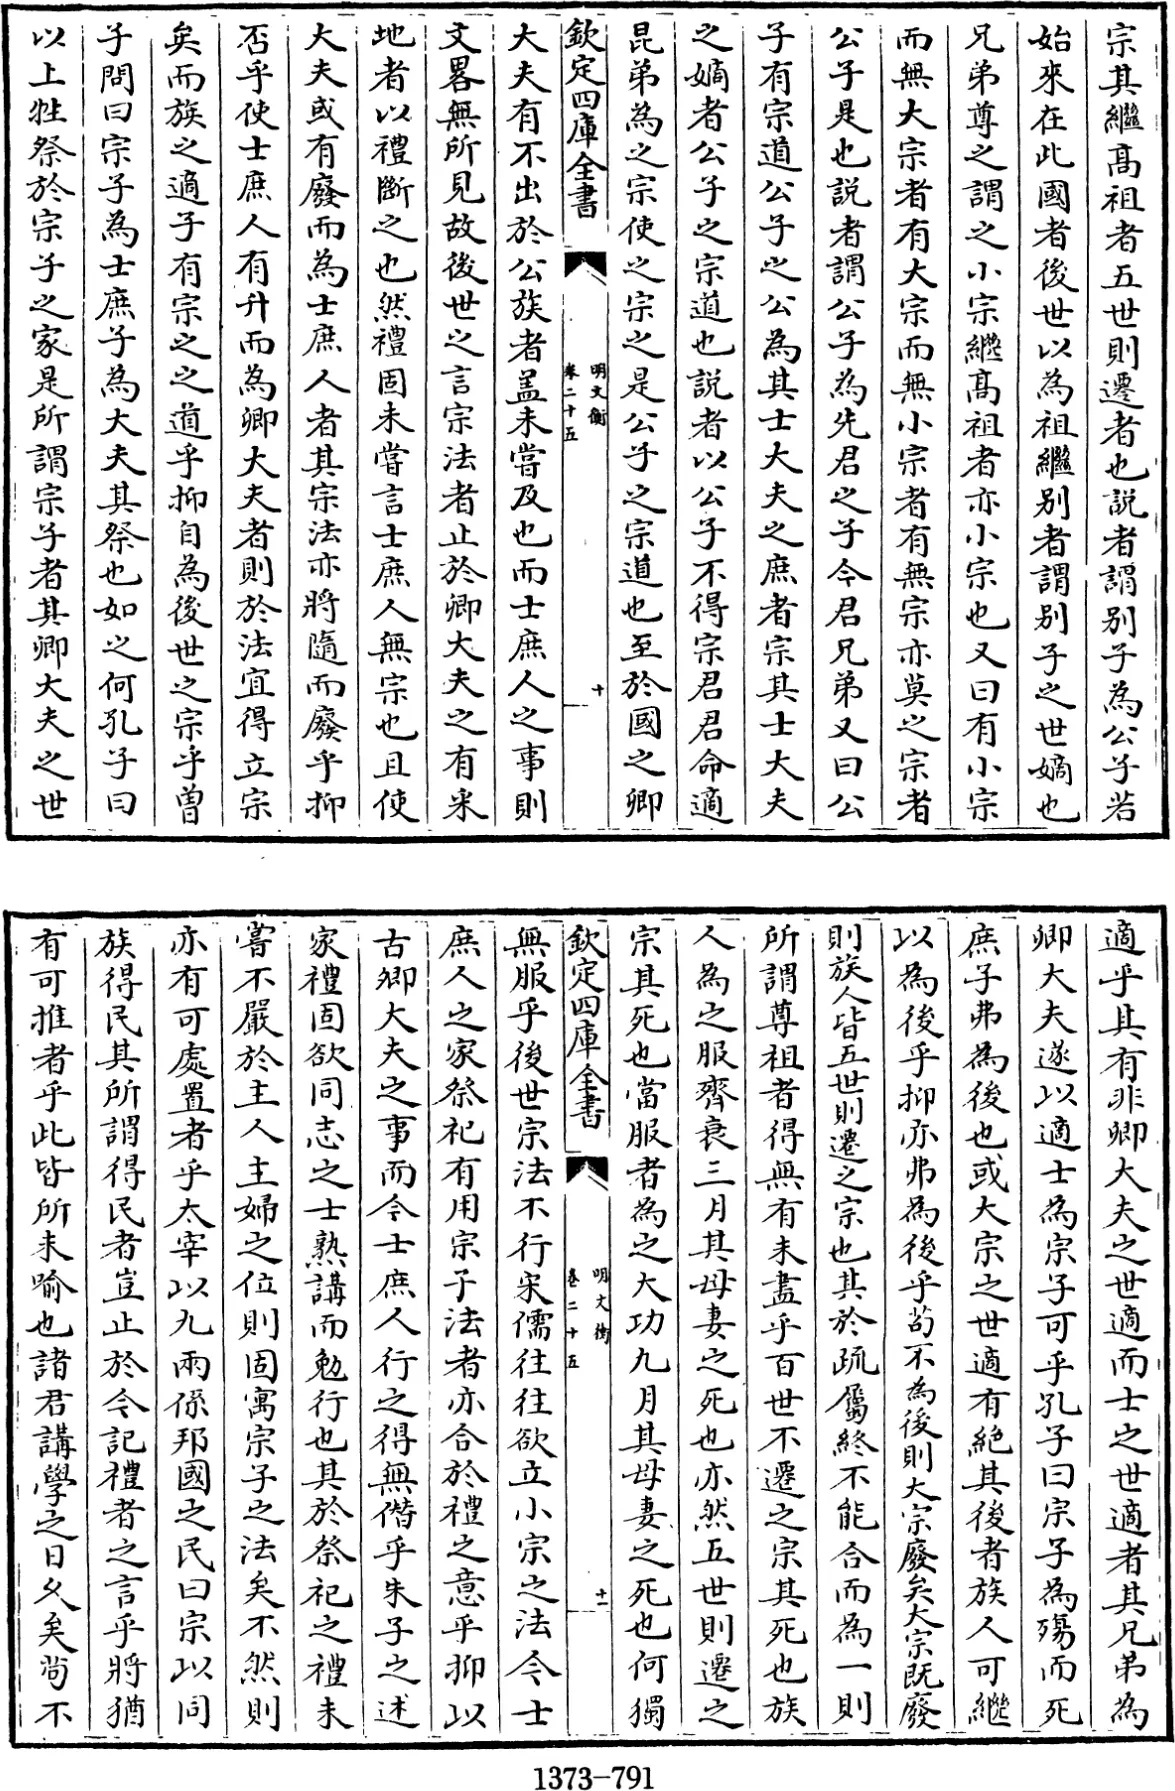 宗其繼髙祖者五世則遷者也説者謂别子為公子若
始來在此國者後世以為祖繼别者謂别子之世嫡也
兄弟尊之謂之小宗繼髙祖者亦小宗也又曰有小宗
而無大宗者有大宗而無小宗者有無宗亦莫之宗者
公子是也説者謂公子為先君之子今君兄弟又曰公
子有宗道公子之公為其士大夫之庶者宗其士大夫
之嫡者公子之宗道也説者以公子不得宗君君命適
昆弟為之宗使之宗之是公子之宗道也至於國之卿
欽定四庫全書
明文衡
卷二十五
十
大夫有不出於公族者盖未嘗及也而士庶人之事則
文畧無所見故後世之言宗法者止於卿大夫之有采
地者以禮斷之也然禮固未嘗言士庶人無宗也且使
大夫或有廢而為士庶人者其宗法亦將隨而廢乎抑
否乎使士庶人有升而為卿大夫者則於法宜得立宗
矣而族之適子有宗之之道乎抑自為後世之宗乎曾
子問曰宗子為士庶子為大夫其祭也如之何孔子曰
以上牲祭於宗子之家是所謂宗子者其卿大夫之世
適乎其有非卿大夫之世適而士之世適者其兄弟為
卿大夫遂以適士為宗子可乎孔子曰宗子為殤而死
庶子弗為後也或大宗之世適有絶其後者族人可繼
以為後乎抑亦弗為後乎茍不為後則大宗廢矣大宗既廢
則族人皆五世則遷之宗也其於疏屬終不能合而為一則
所謂尊祖者得無有未盡乎百世不遷之宗其死也族
人為之服齊衰三月其母妻之死也亦然五世則遷之
宗其死也當服者為之大功九月其母妻之死也何獨
欽定四庫全書
明文衡
卷二十五
十一
無服乎後世宗法不行宋儒往往欲立小宗之法令士
庶人之家祭祀有用宗子法者亦合於禮之意乎抑以
古卿大夫之事而令士庶人行之得無僭乎朱子之述
家禮固欲同志之士熟講而勉行也其於祭祀之禮未
嘗不嚴於主人主婦之位則固寓宗子之法矣不然則
亦有可處置者乎太宰以九兩係邦國之民曰宗以同
族得民其所謂得民者豈止於今記禮者之言乎將猶
有可推者乎此皆所未喻也諸君講學之日久矣茍不
1373-791